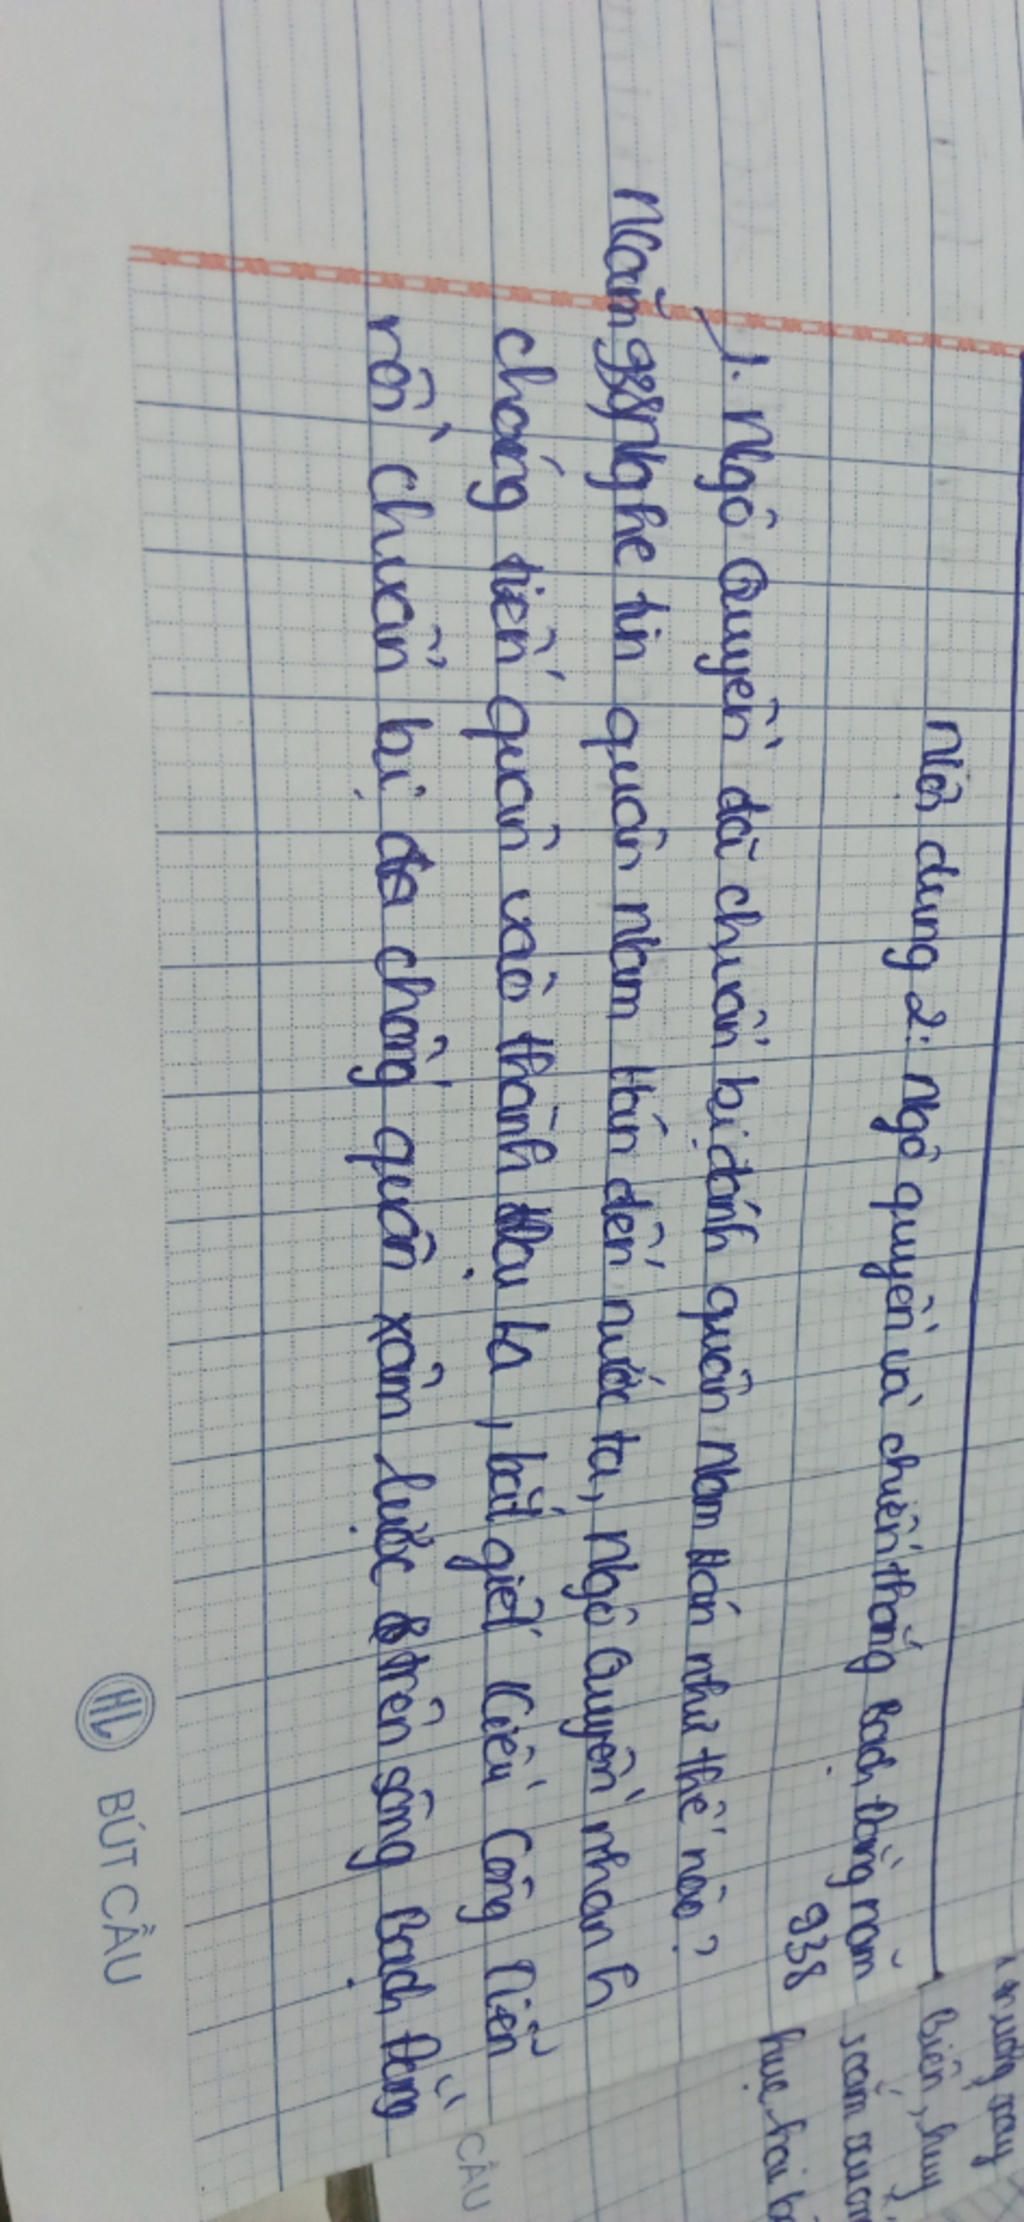 Nội dung 2: Ngô quyền và chiến thắng Bạch Đằng năm
938
1. Ngô Quyền đã chuẩn bị đánh quân Nam Hán như thế nào?
Năm 938 Nghe tin quân Nam Hán đến nước ta, Ngô Quyền nhanh
chóng tiến quân vào thành Đại La, bắt giết Kiều Công Tiễn
rồi chuẩn bị đa chống quân xâm lược trên sông Bạch Đằng
Biên, huy
hục hai b
HL BÚT CẦU
CẦU